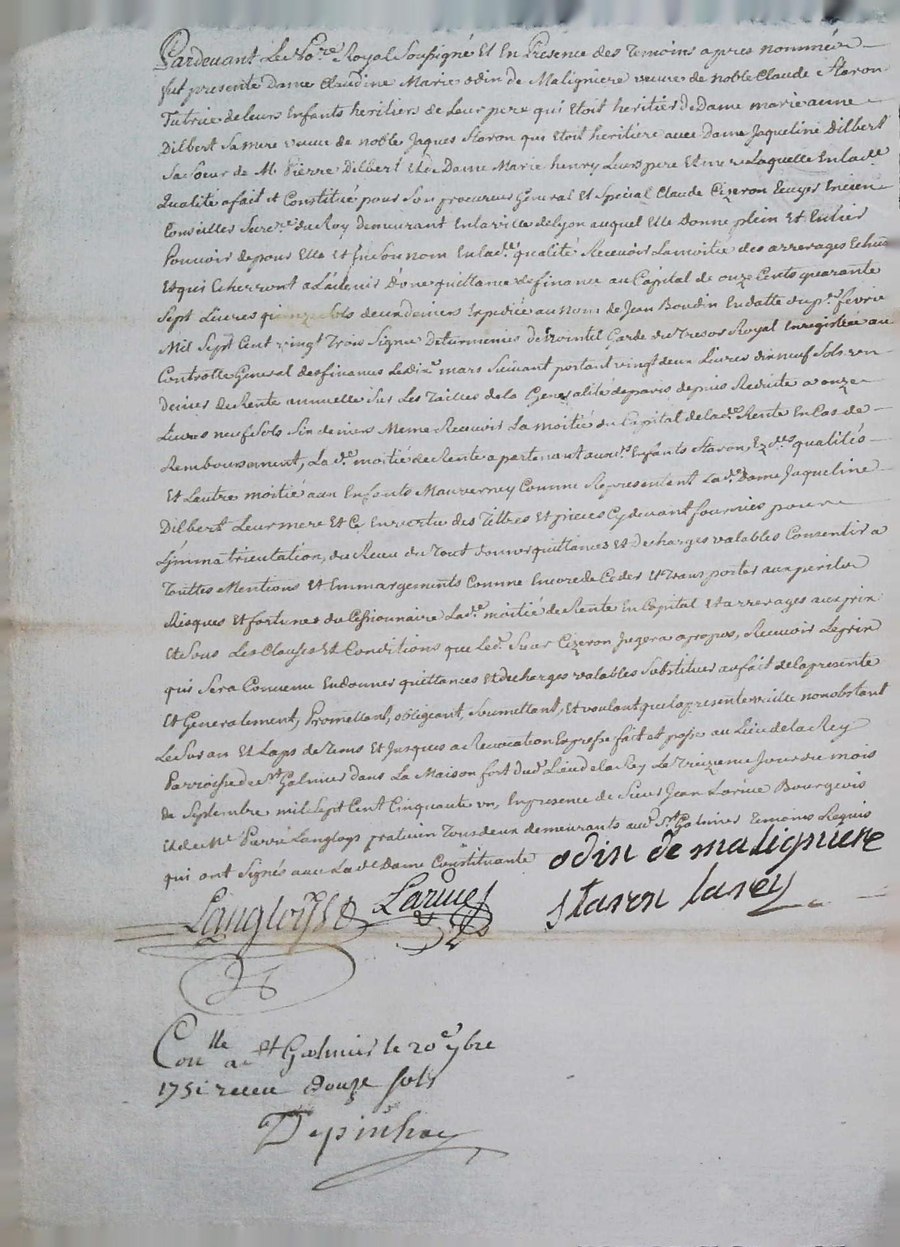 Pardevant Le No.re Royal Soussigné Et En Presence des Temoins apres nommés
fut presente Dame Claudine Marie odin de Maligniere veuve de noble Claude Staron
Tutrice de leurs Enfants heritiers de Leur pere qui Etoit heritier de Dame marie anne
Dilbert Sa mere veuve de noble Jaques Staron qui Etoit heritiere avec Dame Jaqueline Dilbert
Sa Soeur de Mr Pierre Dilbert Et de Dame Marie henry Leurs pere Et mere Laquelle En lad.e
qualité a fait et Constitué pour Son procureur General Et Spécial Claude Cizeron Ecuyer Encien
Conseiller du Roy demeurant En la ville de lyon auquel Elle Donne plein Et Entier
Pouvoir de pour Elle et En Son nom En lad.e qualité Recevoir La moitié des arrerages Echus
Et qui Echerront a L'avenir d'une quittance de finance au Capital de onze Cents quarante
Sept Livres quinze Sols deux deniers Expedié au Nom de Jean Boudin En datte du pr. fevrie
Mil Sept Cent vingt Trois Signé de Turmenies de Nointel Garde du Tresor Royal Enregistrée au
Controlle General des finances Le dix mars Suivant portant vingt deux Livres dix neuf Sols un
denier de Rente annuelle Sur Les Tailles de la Generalité de paris depuis Reduite a onze
Livres neuf Sols Six deniers Meme Recevoir La moitié du Capital de lad.e Rente En Cas de
Remboursement, La d.e moitié de Rente apartenant auxd. Enfants Staron, Ez d.es qualités
Et L'autre moitié aux Enfants Mauverney Comme Representent La d.e Dame Jaqueline
Dilbert Leur mere Et Ce En vertu des Tiltres Et pieces Cy devant fournies pour
L'ymmatriculation, du Receu du Tout donner quittances Et decharges valables Consentir a
Touttes Mentions Et Emmargements Comme Encore de Ceder Et Transporter aux perils
Risques Et fortunes du Cessionnaire La d.e moitié de Rente En Capital Et arrerages aux prix
Et Sous Les Clauses Et Conditions que Led. Sieur Cizeron Jugera apropos, Recevoir Le prix
qui Sera Convenu En donner quittances Et decharges valables Substituer au fait de la presente
Et Generalement, Promettant, obligeant, Soumettant, Et voulant que la presente vaille nonobstant
Le Sur an Et Laps de Tems Et Jusques a Revocation Expresse fait et passé au Lieu de la Rey
Parroisse de St Galmier dans La Maison fort dud. Lieu de la Rey Le Treizeme Jour du mois
de Septembre mil Sept Cent Cinquante un, En presence de Sieur Jean Larive Bourgeois
Et de Me Pierre Langloys praticien Tous deux demeurants aud. St Galmier Temoins Requis
qui ont Signés avec La de Dame Constituante odin de maligniere
Langloys Larive staron larey
Con.lle a St Galmier le 20e 7bre
1751 receu douze sols